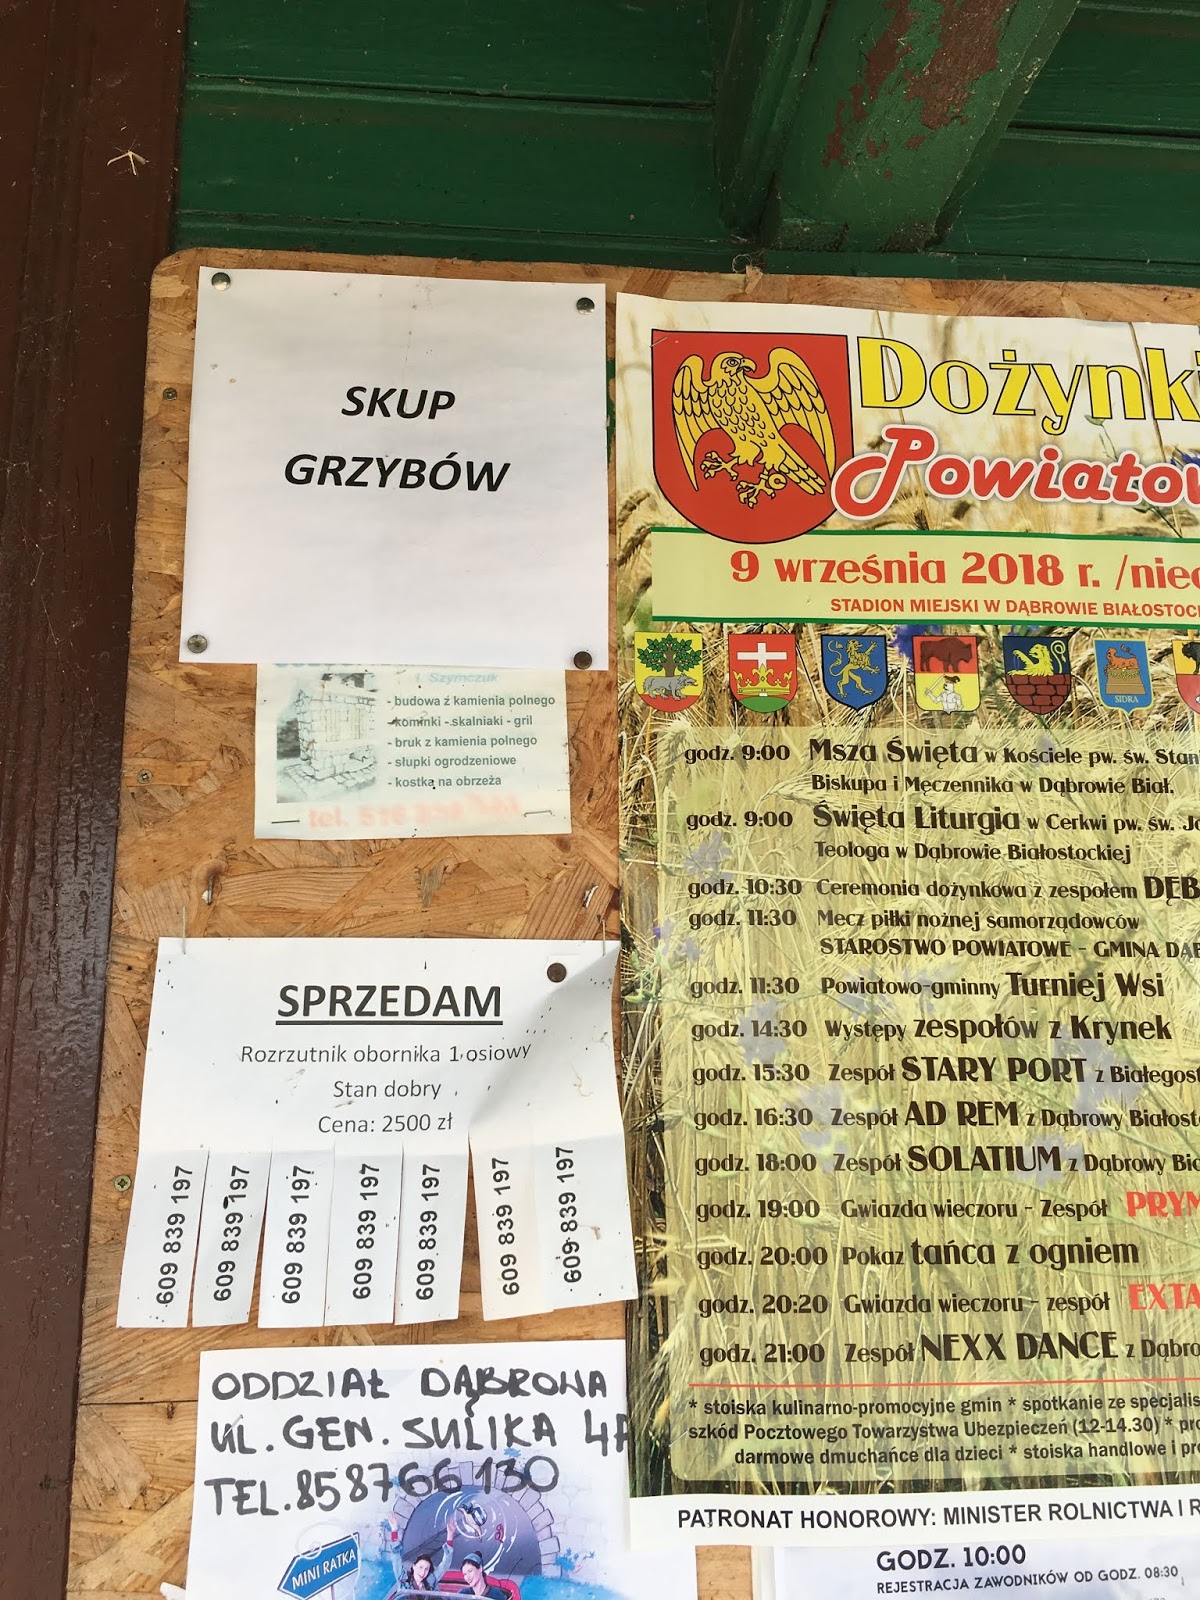 SKUP
GRZYBÓW
I. Szymczuk
- budowa z kamienia polnego
- kominki - skalniaki - gril
- bruk z kamienia polnego
- słupki ogrodzeniowe
- kostka na obrzeża
tel. 516
SPRZEDAM
Rozrzutnik obornika 1 osiowy
Stan dobry
Cena: 2500 zł
609 839 197
609 839 197
609 839 197
609 839 197
609 839 197
609 839 197
609 839 197
ODDZIAŁ DĄBROWA
UL. GEN. SULIKA 4A
TEL. 858766 130
MINI RATKA
Dożynki
Powiatow
9 września 2018 r. /nied
STADION MIEJSKI W DĄBROWIE BIAŁOSTOC
SIDRA
godz. 9:00 Msza Święta w Kościele pw. św. Stan
Biskupa i Męczennika w Dąbrowie Biał.
godz. 9:00 Święta Liturgia w Cerkwi pw. św. Ja
Teologa w Dąbrowie Białostockiej
godz. 10:30 Ceremonia dożynkowa z zespołem DĘB
godz. 11:30 Mecz piłki nożnej samorządowców
STAROSTWO POWIATOWE - GMINA DĄB
godz. 11:30 Powiatowo-gminny Turniej Wsi
godz. 14:30 Występy zespołów z Krynek
godz. 15:30 Zespół STARY PORT z Białegost
godz. 16:30 Zespół AD REM z Dąbrowy Białosto
godz. 18:00 Zespół SOLATIUM z Dąbrowy Biał
godz. 19:00 Gwiazda wieczoru - Zespół PRYM
godz. 20:00 Pokaz tańca z ogniem
godz. 20:20 Gwiazda wieczoru - zespół EXTA
godz. 21:00 Zespół NEXX DANCE z Dąbro
* stoiska kulinarno-promocyjne gmin * spotkanie ze specjalis
szkód Pocztowego Towarzystwa Ubezpieczeń (12-14.30) * pro
darmowe dmuchańce dla dzieci * stoiska handlowe i pr
PATRONAT HONOROWY: MINISTER ROLNICTWA I R
GODZ. 10:00
REJESTRACJA ZAWODNIKÓW OD GODZ. 08:30